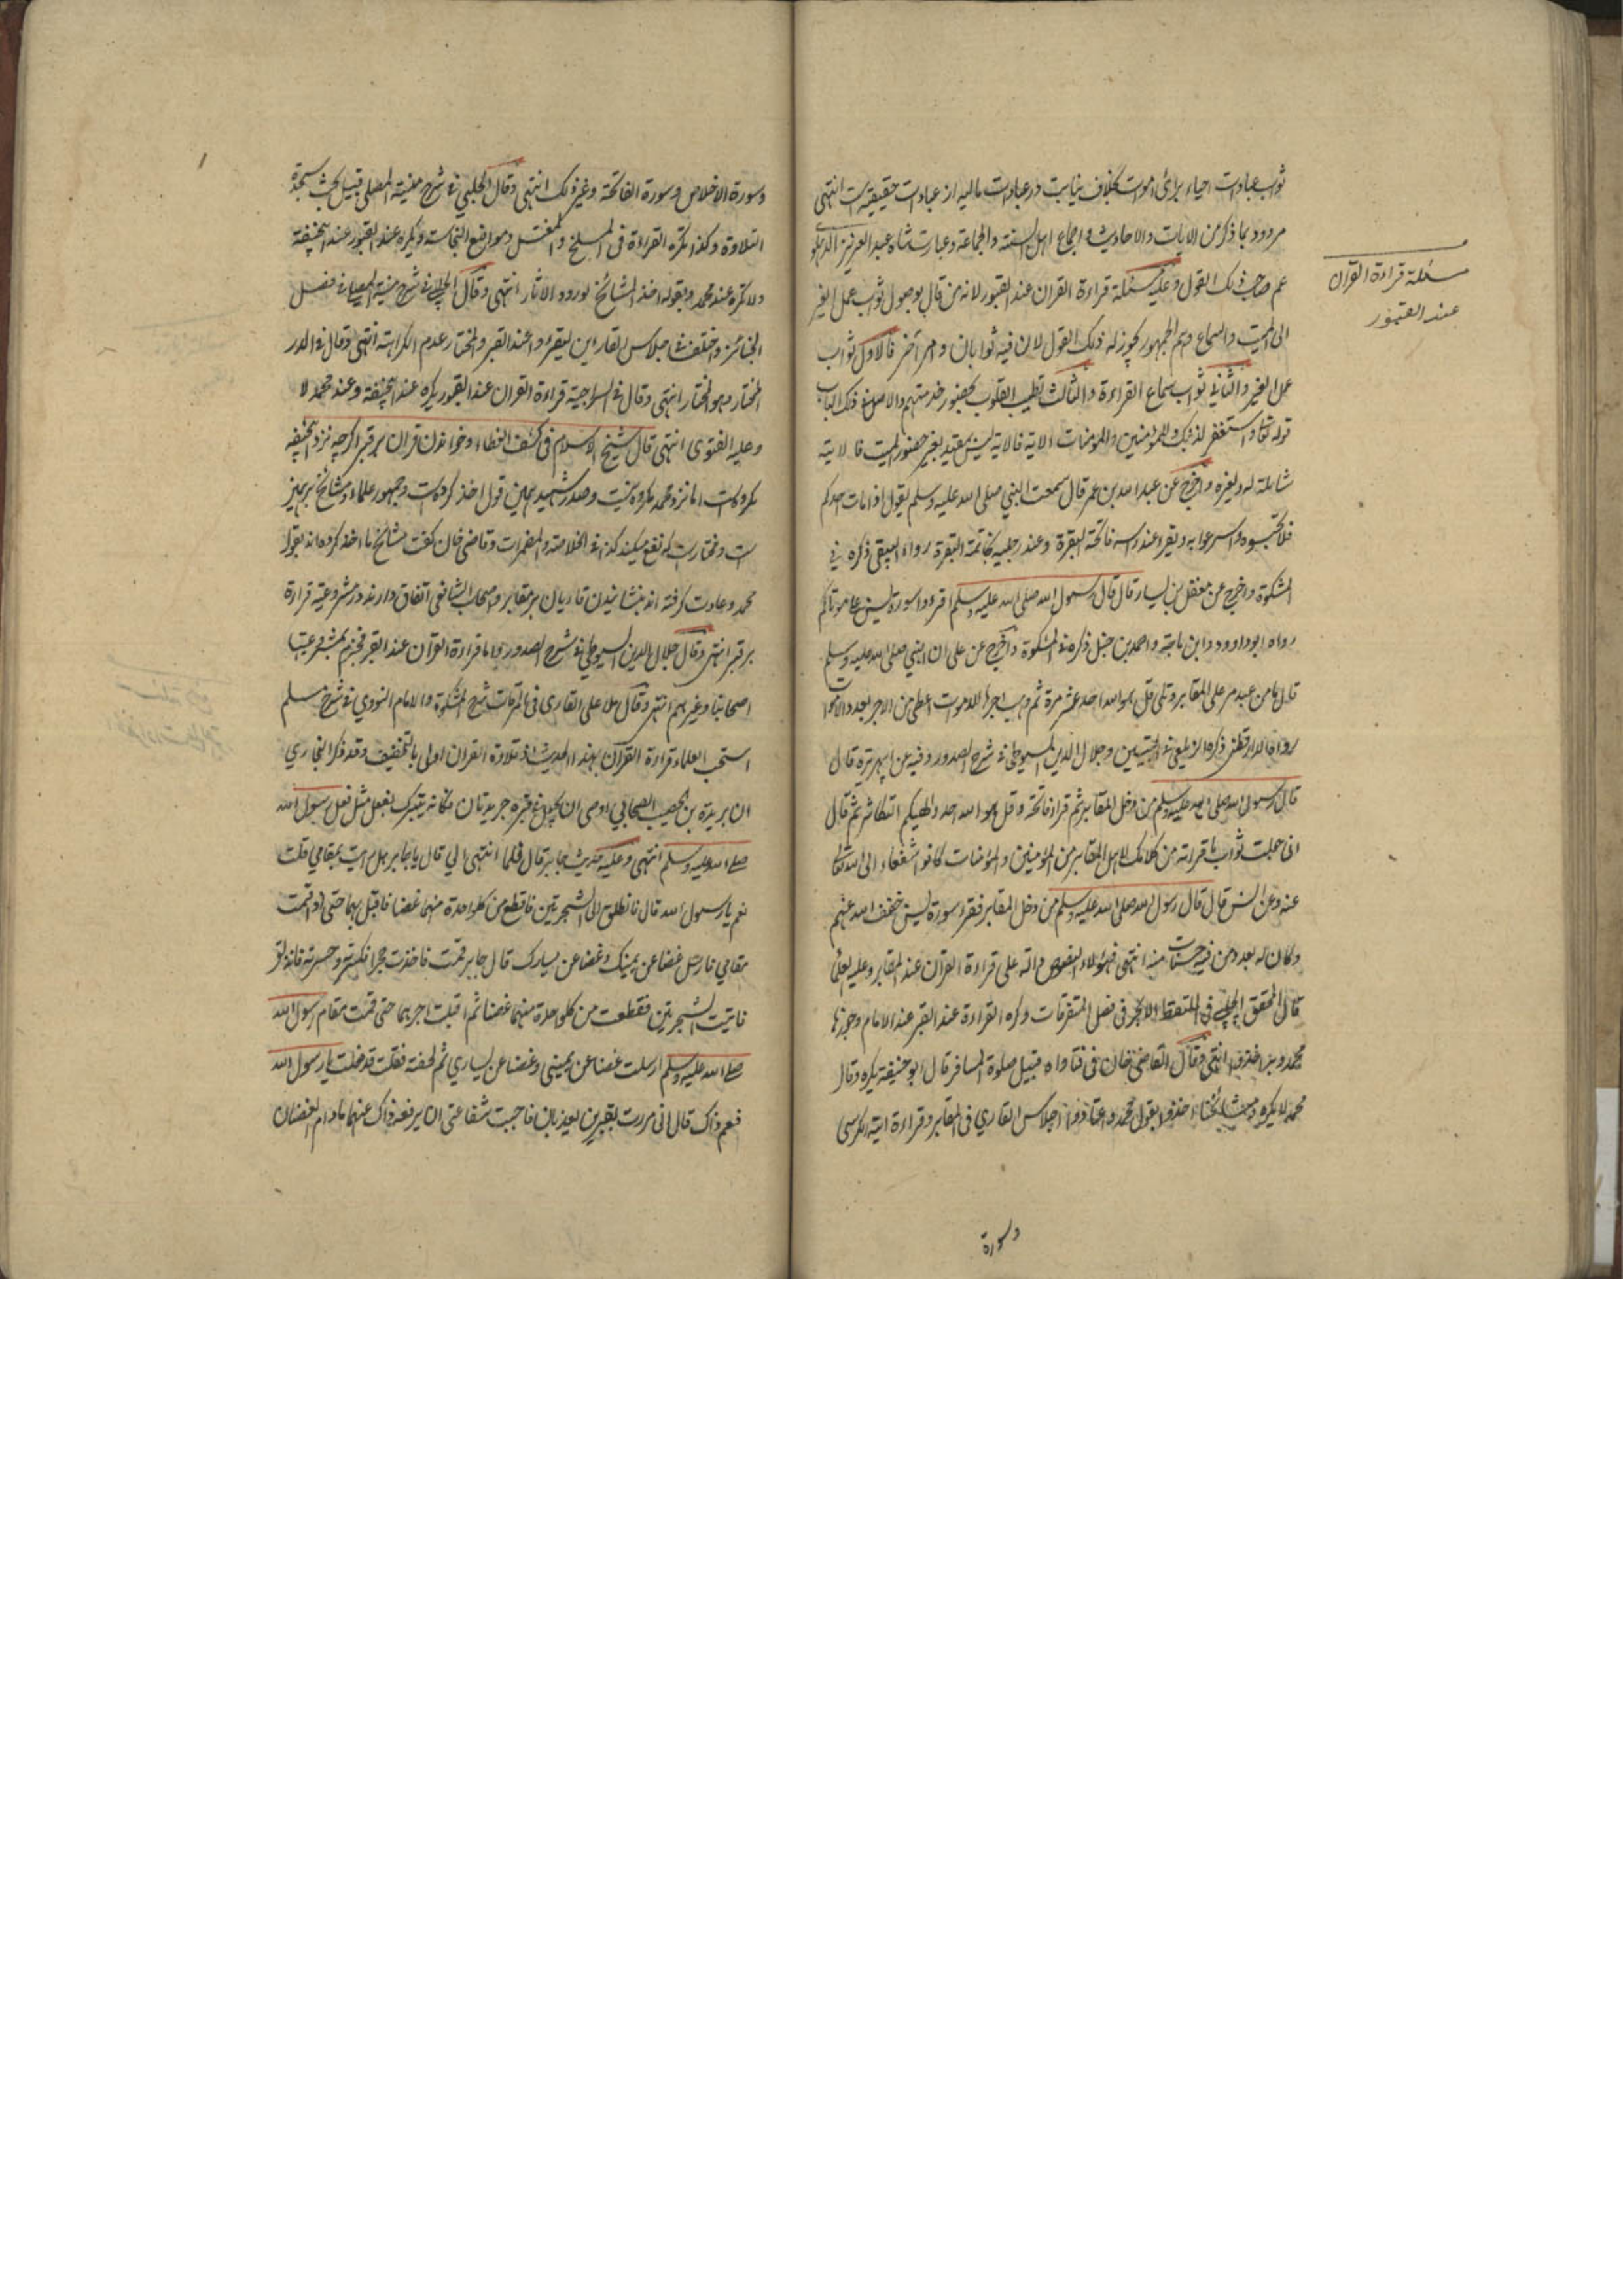 ثواب عبادات احیاء برائ اموات بخلاف نیابت در عبادات مالیه از عبادات حقیقیه است انتهی
مردود بما ذکر من الایات والاحادیث و اجماع اهل السنة والجماعة وعبارت شاه عبد العزیز الدهلوی
مسئلة قراءة القران
عند القبور
عم صاحب ذلک القول وعلیه مسئلة قراءة القران عند القبور لانه من قال بوصول ثواب عمل الغیر
الی المیت والسماع وهم الجمهور یجوز له ذلک القول لان فیه ثوابان وامر آخر فالاول ثواب
عمل الغیر والثانی ثواب سماع القراءة والثالث تطیب القلوب بحضور خدمتهم والاصل فی ذلک الباب
قوله تعالی واستغفر لذنبک وللمؤمنین والمومنات الایة فالایة لیس بمقید بغیر حضور المیت فالایة
شاملة له ولغیره واخرج عن عبد الله بن عمر قال سمعت النبی صلی الله علیه وسلم یقول اذا مات احدکم
فلا تحبسوه واسرعوا به ویقرا عند راسه فاتحة البقرة وعند رجلیه بخاتمة البقرة رواه البیهقی ذکره فی
المشکوة واخرج عن معقل بن یسار قال قال رسول الله صلی الله علیه وسلم اقرءوا سورة یس علی موتاکم
رواه ابو داوود وابن ماجة واحمد بن حنبل ذکره فی المشکوة واخرج عن علی ان النبی صلی الله علیه وسلم
قال ما من عبد مر علی المقابر وتلی قل هو الله احد عشر مرة ثم وهب اجرها للاموات اعطی من الاجر بعدد الاموات
رواه الدارقطنی ذکره الزیلعی فی التبیین وجلال الدین السیوطی فی شرح الصدور وفیه عن ابی هریرة قال
قال رسول الله صلی الله علیه وسلم من دخل المقابر ثم قراء فاتحة وقل هو الله احد والهیکم التکاثر ثم قال
انی جعلت ثواب ما قراته من کلامک لاهل المقابر من المؤمنین والمؤمنات کانوا شفعاء الی الله تعالی
عنه وعن انس قال قال رسول الله صلی الله علیه وسلم من دخل المقابر فقرء سورة یس خفف الله عنهم
وکان له بعدد من فیه حسنات منه انتهی فهؤلاء النصوص دالة علی قراءة القران عند المقابر وعلیه العلماء
قال المحقق الحلبی فی الملتقط الابحر فی فصل المتفرقات وکره القراءة عند القبر عند الامام وجوزها
محمد وبه اخذ انتهی وقال القاضی خان فی فتاواه قبیل صلوة المسافر قال ابو حنیفة یکره وقال
محمد لا یکره ومشائخنا اخذوا بقول محمد واعتادوا اجلاس القاری فی المقابر وقراءة ایة الکرسی
وسورة
وسورة الاخلاص وسورة الفاتحة وغیر ذلک انتهی وقال الحلبی فی شرح منیة المصلی قبیل بحث سجدة
التلاوة وکذا تکره القراءة فی المسلخ والمغتسل ومواضع النجاسة ویکره عند القبور عند ابی حنیفة
ولا تکره عند محمد وبقوله اخذ المشائخ لورود الاثار انتهی وقال الحلبی فی شرح منیة المصلی فی فصل
الجنائز واختلف فی اجلاس القارئین لیقرءوا عند القبر والمختار عدم الکراهة انتهی وقال فی الدر
المختار وهو المختار انتهی وقال فی السراجیة قراءة القران عند القبور یکره عند ابی حنیفة وعند محمد لا
وعلیه الفتوی انتهی قال شیخ الاسلام فی کشف الغطاء وخواندن قران بر قبر اکرچه نزد ابی حنیفه
مکروه است اما نزد محمد مکروه نیست وصدر شهید بهمین قول اخذ کرده است وجمهور علماء ومشائخ نیز بهمین
ست ومختار است که نفع میکند کذا فی الخلاصة والمضمرات وقاضی خان کفت مشائخ ما اخذ کرده اند بقول
محمد وعادت کرفته اند بنشانیدن قاریان بر مقابر واصحاب الشافعی اتفاق دارند در مشروعیة قراءة
بر قبر انتهی وقال جلال الدین السیوطی فی شرح الصدور واما قراءة القرآن عند القبر فجزم بمشروعیتها
اصحابنا وغیرهم انتهی وقال ملا علی القاری فی المرقات شرح المشکوة والامام النووی فی شرح مسلم
استحب العلماء قراءة القرآن بهذا الحدیث اذ تلاوة القران اولی بالتخفیف وقد ذکر البخاری
ان بریدة بن الحصیب الصحابی اوصی ان یجعل فی قبره جریدتان فکانه یتبرک بفعل مثل فعل رسول الله
صلی الله علیه وسلم انتهی وعلیه حدیث جابر قال فلما انتهی الی قال یا جابر هل رایت بمقامی قلت
نعم یا رسول الله قال فانطلق الی الشجرتین فاقطع من کل واحدة منهما غصنا فاقبل بهما حتی اذا قمت
مقامی فارسل غصنا عن یمینک وغصنا عن یسارک قال جابر فقمت فاخذت حجرا فکسرته وحسرته فانذلق
فاتیت الشجرتین فقطعت من کل واحدة منهما غصنا ثم اقبلت اجرهما حتی قمت مقام رسول الله
صلی الله علیه وسلم ارسلت غصنا عن یمینی وغصنا عن یساری ثم لحقته فقلت قد فعلت یا رسول الله
فعم ذاک قال انی مررت بقبرین یعذبان فاحببت شفاعتی ان یرفه ذاک عنهما ما دام الغصنان